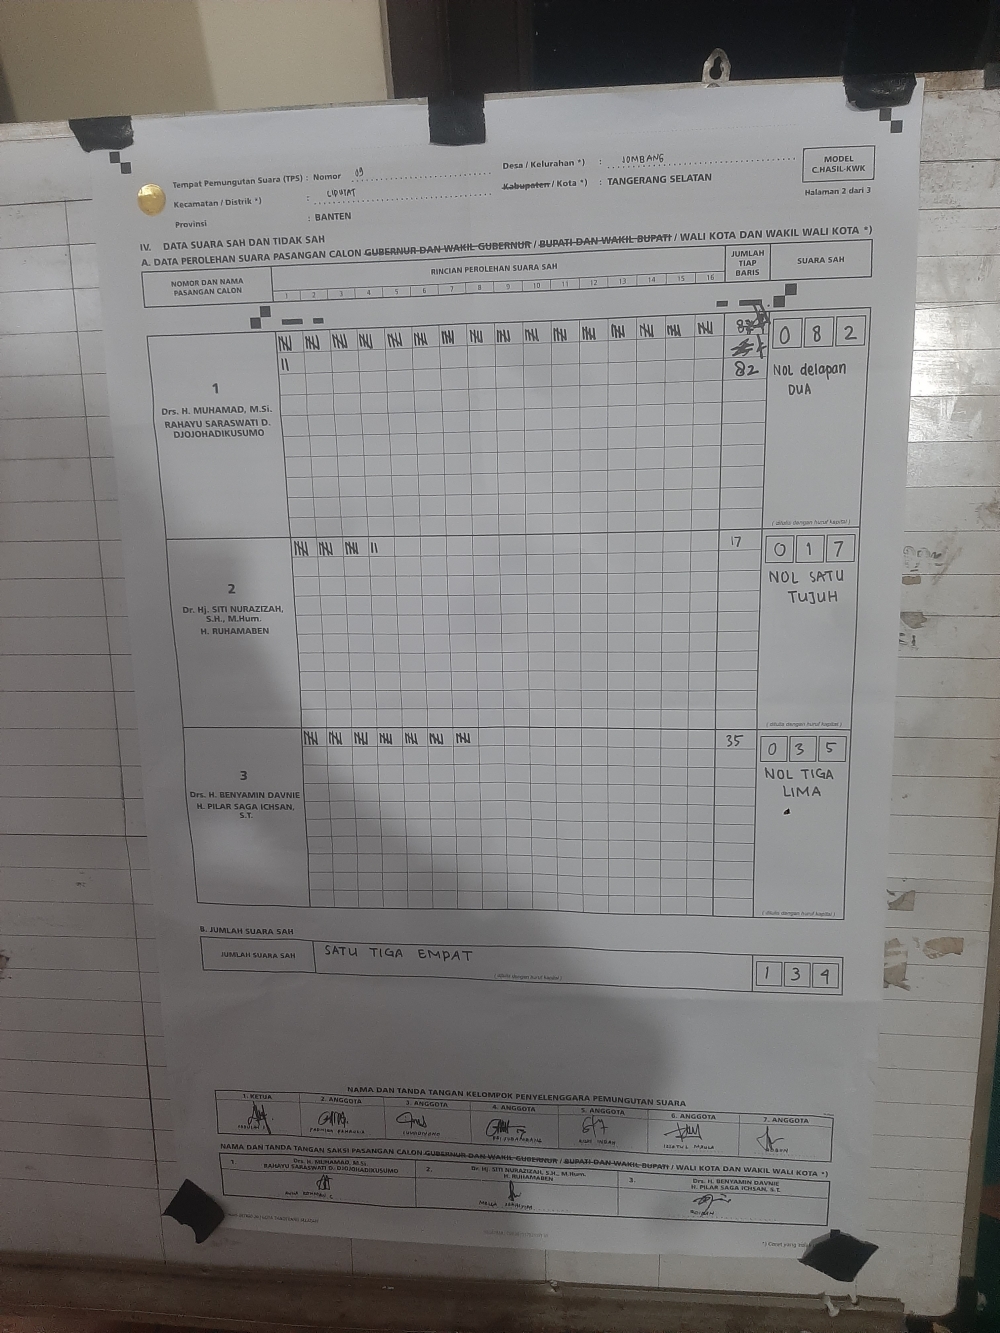 MODEL
C.HASIL-KWK
Halaman 2 dari 3
Tempat Pemungutan Suara (TPS) : Nomor 09
Kecamatan / Distrik *) : CIPUTAT
Provinsi : BANTEN
Desa / Kelurahan *) : JOMBANG
Kabupaten / Kota *) : TANGERANG SELATAN
IV. DATA SUARA SAH DAN TIDAK SAH
A. DATA PEROLEHAN SUARA PASANGAN CALON GUBERNUR DAN WAKIL GUBERNUR / BUPATI DAN WAKIL BUPATI / WALI KOTA DAN WAKIL WALI KOTA *)
NOMOR DAN NAMA
PASANGAN CALON
RINCIAN PEROLEHAN SUARA SAH
1 2 3 4 5 6 7 8 9 10 11 12 13 14 15 16
JUMLAH
TIAP
BARIS
SUARA SAH
1
Drs. H. MUHAMAD, M.Si.
RAHAYU SARASWATI D.
DJOJOHADIKUSUMO
82
0 8 2
NOL delapan
DUA
( ditulis dengan huruf kapital )
2
Dr. Hj. SITI NURAZIZAH,
S.H., M.Hum.
H. RUHAMABEN
17
0 1 7
NOL SATU
TUJUH
( ditulis dengan huruf kapital )
3
Drs. H. BENYAMIN DAVNIE
H. PILAR SAGA ICHSAN,
S.T.
35
0 3 5
NOL TIGA
LIMA
( ditulis dengan huruf kapital )
B. JUMLAH SUARA SAH
JUMLAH SUARA SAH
SATU TIGA EMPAT
( ditulis dengan huruf kapital )
1 3 4
NAMA DAN TANDA TANGAN KELOMPOK PENYELENGGARA PEMUNGUTAN SUARA
1. KETUA
2. ANGGOTA
3. ANGGOTA
4. ANGGOTA
5. ANGGOTA
6. ANGGOTA
7. ANGGOTA
NAMA DAN TANDA TANGAN SAKSI PASANGAN CALON GUBERNUR DAN WAKIL GUBERNUR / BUPATI DAN WAKIL BUPATI / WALI KOTA DAN WAKIL WALI KOTA *)
1. Drs. H. MUHAMAD, M.Si.
RAHAYU SARASWATI D. DJOJOHADIKUSUMO
2. Dr. Hj. SITI NURAZIZAH, S.H., M.Hum.
H. RUHAMABEN
3. Drs. H. BENYAMIN DAVNIE
H. PILAR SAGA ICHSAN, S.T.